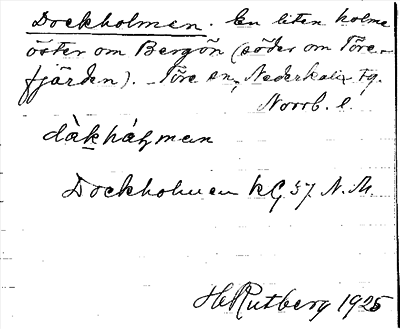 Dockholmen. En liten holme
öster om Bergön (söder om Töre-
fjärden). Töre sn, Nederkalix tg.
Norrb. l.
dàkhálman
Dockholmen kG 37 N.M.
H Rutberg 1925